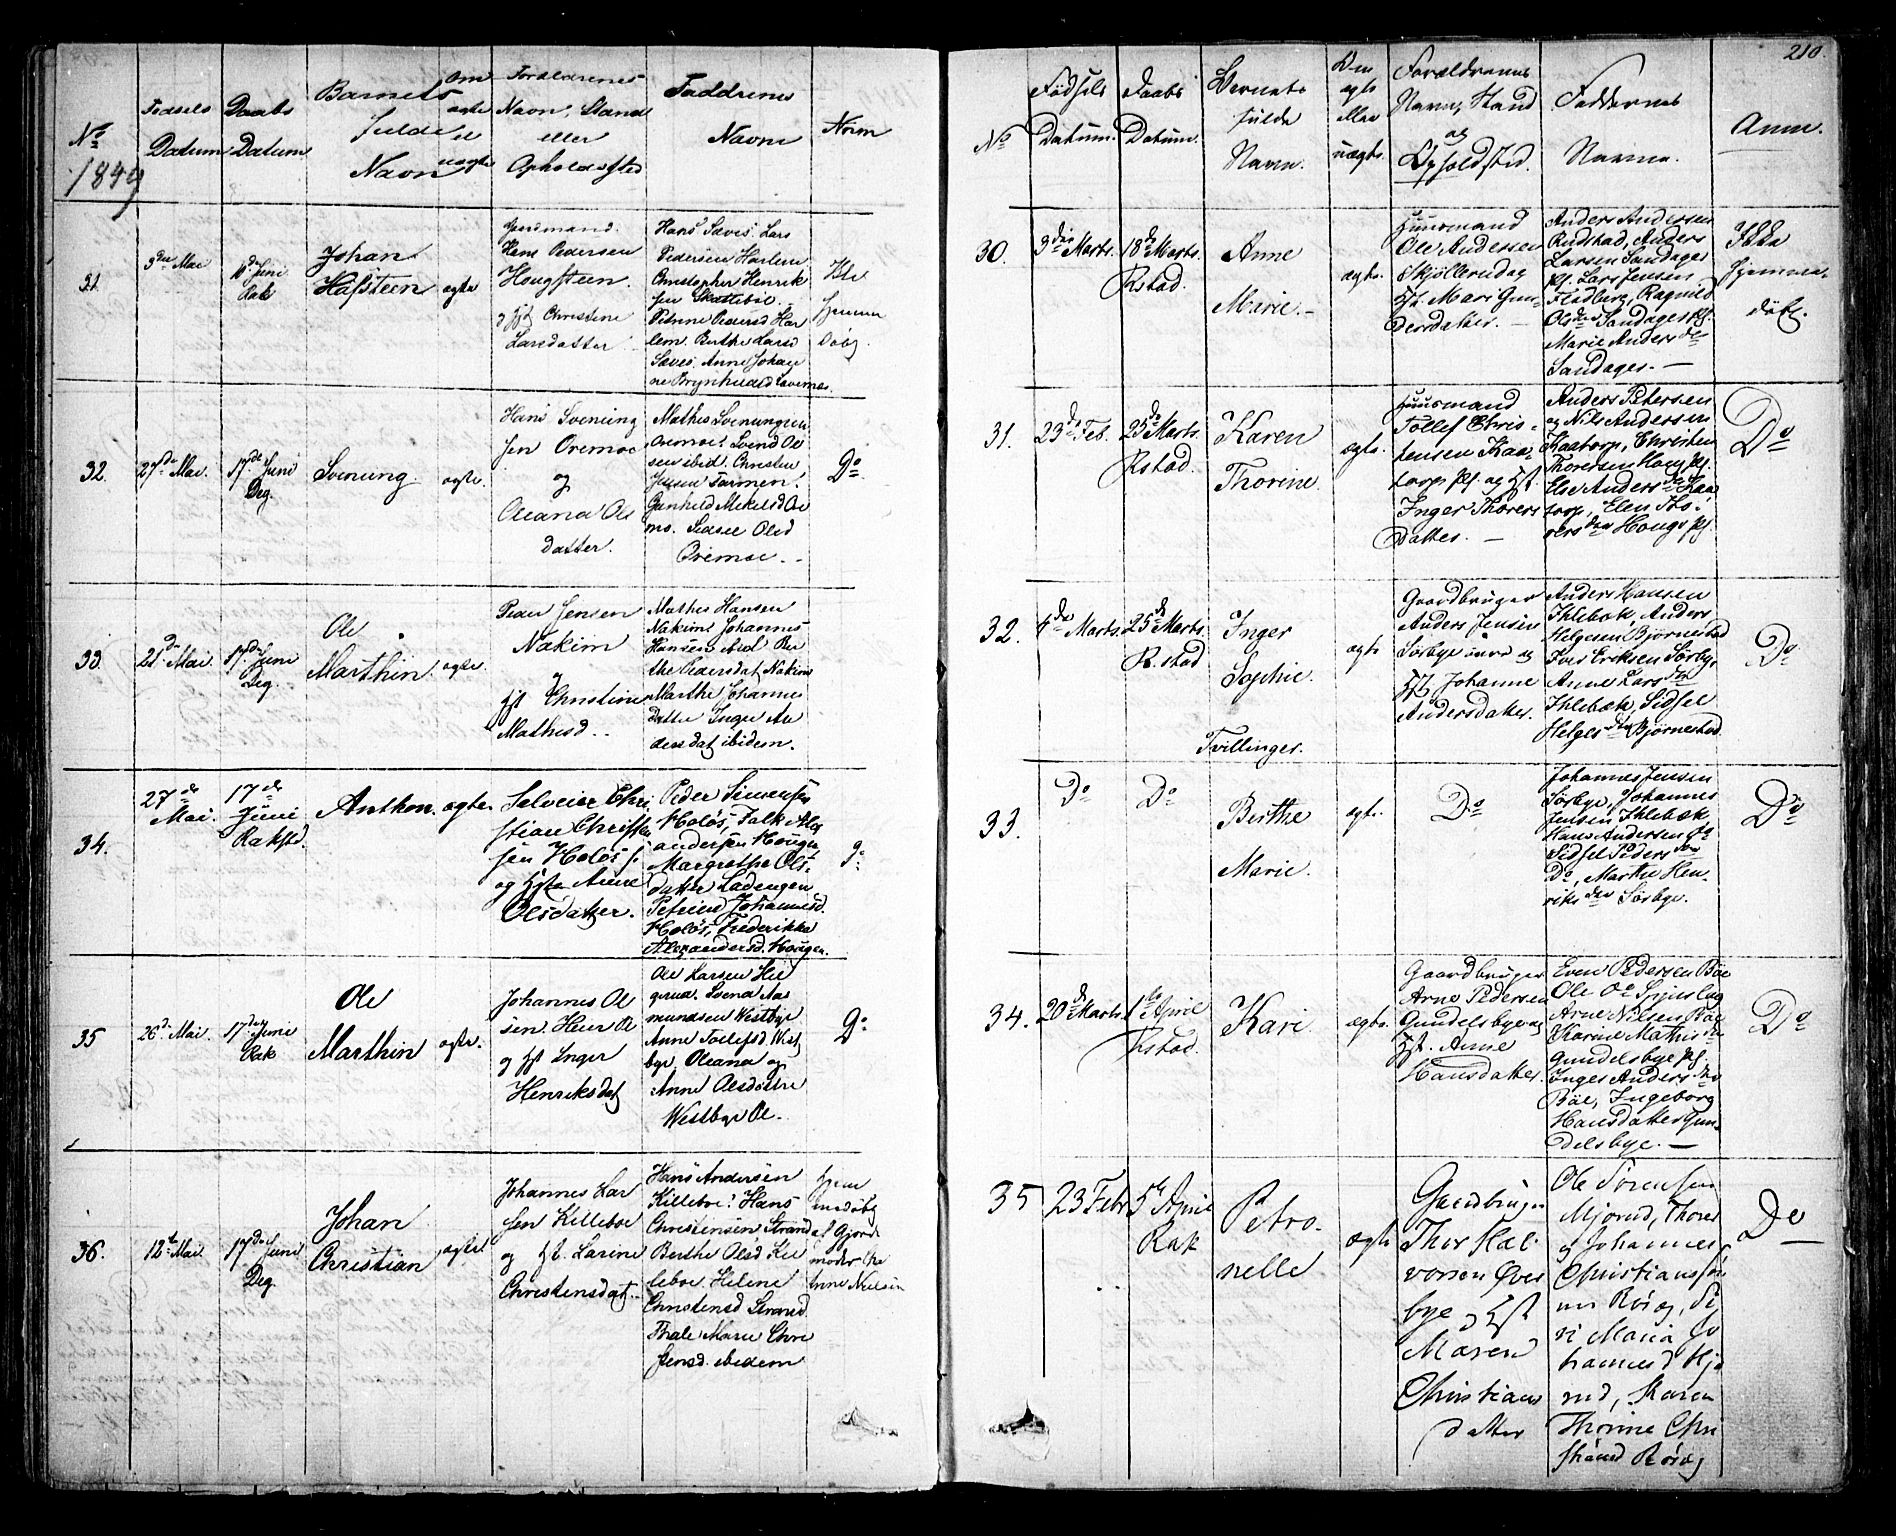 No
1849
Fødsels
Datum
Daabs
Datum
Barnets
fulde
Navn
om
ægte
el
uægte
Forældrenes
Navn, Stand
eller
Opholdssted
Faddrenes
Navn
31.
3die Mai
10de Juni
Rak
Johan
Hafsteen
ægte
Huusmand
Hans Pedersen
Hougsteen
og Hst Christine
Larsdatter
Lars
Pedersen Harlem
Christopher Henrik
sen Skattebøl
Petrine Pedersd Har
lem. Berthe Larsd
Anne Johan
ne
Ikke
hjemme
døbt.
32.
27de Mai.
17de Juni
Deg.
Svenung.
ægte.
Hans Svenung
sen Oremoe
og
Oleana Ols
datter.
Mathis Svenungsen
Oremoe. Svend Ol
sen ibid. Christen
Jensen
Gunhild Mikelsd Ore
mo. Sidsel Olsd
Oremoe.
Do
33.
21de Mai.
17de Juni
Deg.
Ole
Marthin
ægte.
Peder Jensen
Nakim
og
Hst Christine
Mathisd.
Mathis Hansen
Nakim. Johannes
Hansen ibid Ber
the Pedersdat. Nakim
Marthe Johannes
datter Inger An
dersdat ibidem.
34.
27de
Mai.
17de
Juni
Rakstd.
Anthon.
ægte.
Selveier Chri
stian Christen
sen Holøs
og Hste Anne
Olsdatter.
Peder Simensen
Holøs, Falk Alex
andersen Hougen
Margrethe Ols-
datter Ladengen
Petrine Johannesd.
Holøs, Frederikke
Alexandersd. Hougen.
Do
35
26de Mai.
17de Juni
Rak
Ole
Marthin
ægte.
Johannes Ol
sen
og Hst Inger
Henriksdat
Ole Larsen
Svend Aas
mundsen Westbye
Anne Tollefsd. West
bye Oleana og
Anne Olsdøttre
Westbye
Do
36.
12te Mai
17de Juni
Deg.
Johan
Christian
ægte
Johannes Lar
sen Killeboe
og Hst. Larine
Christensdat.
Hans Andersen
Killeboe. Hans
Christensen Strand
Berthe Olsd Kil
leboe. Helene
Christensd Strand
Thale Marie Chri
stensd. ibidem
hjem
medøbt
af Gjord
moder
Anne Nielsen
210.
No
Fødsels
Datum.
Daabs
Datum.
Barnets
fulde
Navn.
Om
ægte
eller
uægte.
Forældrenes
Navn, Stand
og
Opholdsted.
Faddernes
Navne.
Anm.
30.
3die Marts.
18de Marts.
Rstad.
Anne
Marie.
ægte.
Huusmand
Ole Andersen
Skjøllerudeg
Hst. Mari Gun-
dersdatter.
Anders Andersen
Rudstad, Anders
Larsen Sandager
pl. Lars Jensen
Flatberg, Ragnild
Olsder Sandager pl.
Marie Andersder
Sandager.
Ikke
hjemme-
døbt.
31.
23de Feb.
25de Marts.
Rstad.
Karen
Thorine.
ægte.
Huusmand
Tollef Chris-
tensen Kaa-
torp pl. og Hst.
Inger Thorers
datter.
Anders Petersen
og Nils Andersen
Kaatorp, Christen
Thoresen Houg pl.
Else Andersder Kaa
torp, Elen Tho-
rersder Hougs pl.
Do
32.
4de Marts.
25de Marts.
Rstad
Inger
Sophie.
Tvillinger.
ægte
Gaardbruger
Anders Jensen
Sørbye øvre og
Hst. Johanne
Andersdatter.
Anders Hansen
Ihlebæk, Anders
Helgesen Bjørnestad
Iver Eriksen Sørbye,
Anne Larsder
Ihlebæk, Sidsel
Helgesder Bjørnestad.
Do
33.
Do
Do
Berthe
Marie.
ægte.
Do
Johannes Jensen
Sørbye, Johannes
Jensen Ihlebæk
Hans Andersen Do
Sidsel Pedersder
Do, Marthe Hen-
riksder Sørbye.
Do
34.
20de Marts.
1ste April
Rstad.
Kari
ægte.
Gaardbruger
Arne Pedersen
Gundelsbye og
Hst. Anne
Hansdatter.
Even Pedersen Bøe
Ole Do
Arne Nilsen Bøe
Karine Mathisder
Gundelsbye pl.
Inger Andersder
Bøe, Ingeborg
Hansdatter Gun-
delsbye.
Do
35
23 Febr
5te April
Rak
Petro-
nelle
ægte
Gaardbruger
Thor Hal-
vorsen Øver
bye og Hst
Maren
Christians
datter
Ole Sørensen
Mjørud, Thorer
og Johannes
Christianssøn
ner Røsæg, Si
ri Maria Jo
hannesd Mjø
rud, Karen
Thorine Chri
stiansd Røsæg
Do